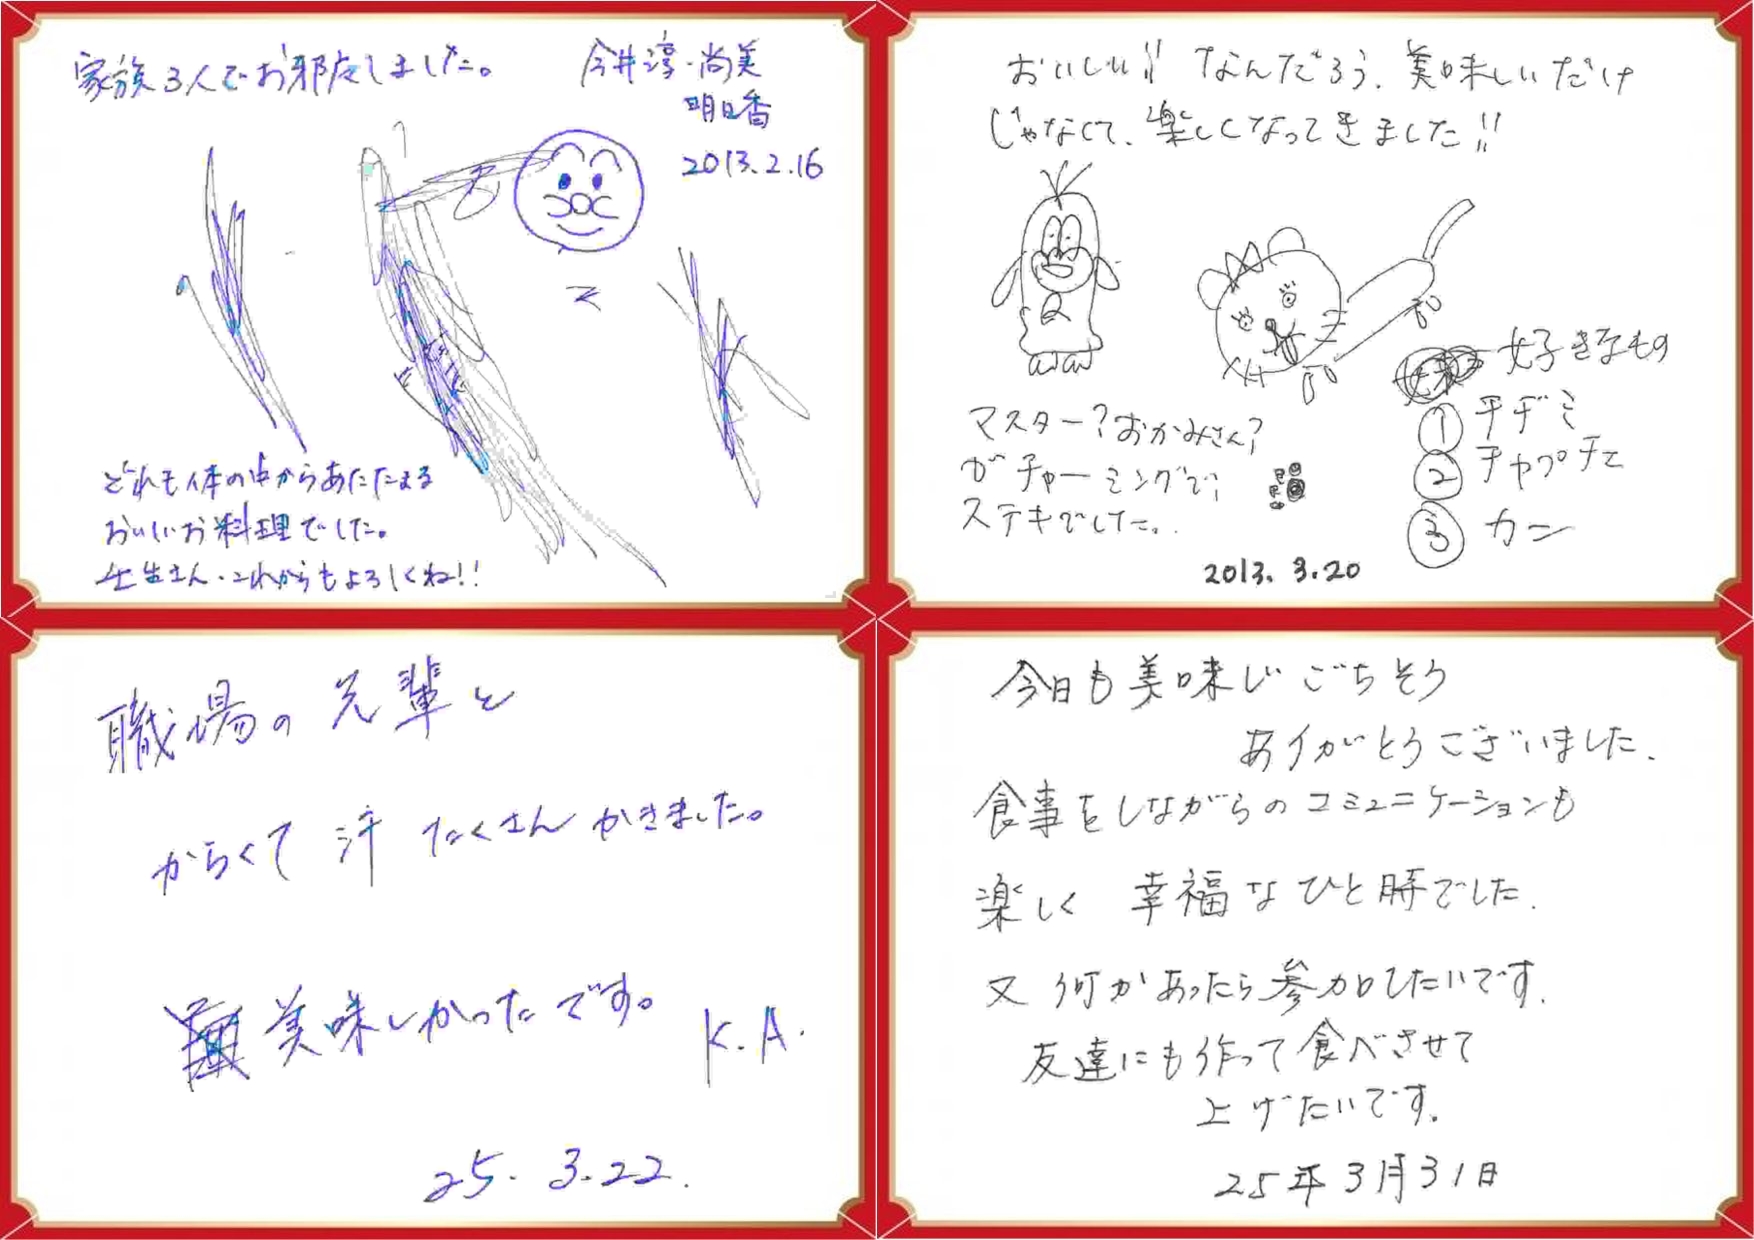 家族3人でお邪魔しました。
今井淳・尚美
明日香
2013.2.16
どれも体の中からあたたまる
おいしいお料理でした。
さん・これからもよろしくね!!
おいしい!! なんだろう、美味しいだけ
じゃなくて、楽しくなってきました!!
好きなもの
① チヂミ
② チャプチェ
③ カニ
マスター?おかみさん?
がチャーミングで
ステキでした...
2013. 3.20
職場の先輩と
からくて 汗 たくさん かきました。
美味しかったです。
K.A.
25. 3.22.
今日も美味しい ごちそう
ありがとうございました.
食事をしながらのコミュニケーションも
楽しく 幸福なひと時でした.
又 何かあったら参加したいです.
友達にも作って食べさせて
上げたいです.
25年3月31日